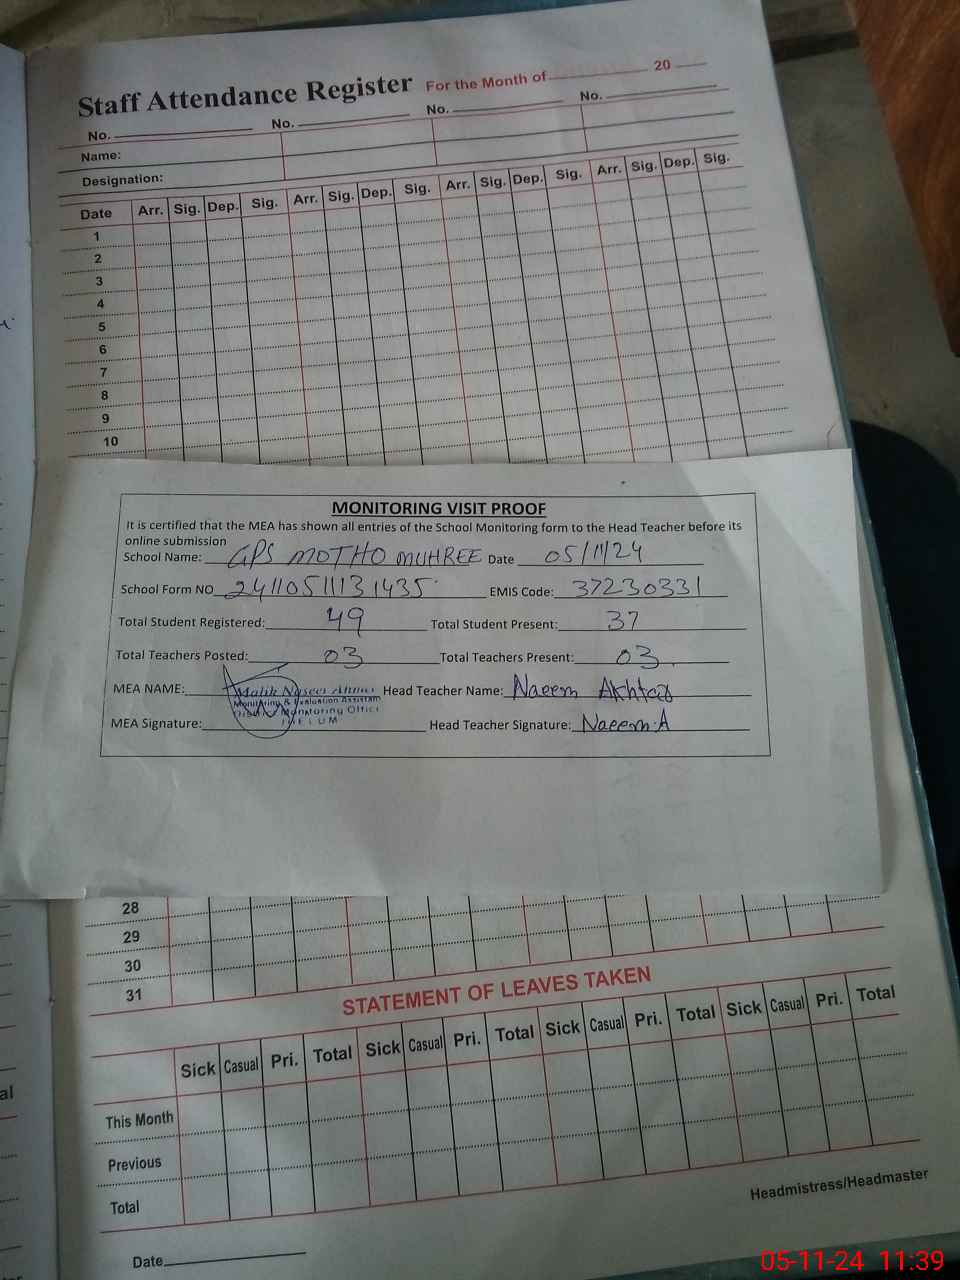 Staff Attendance Register For the Month of 20
No. No. No. No.
Name:
Designation:
Date Arr. Sig. Dep. Sig. Arr. Sig. Dep. Sig. Arr. Sig. Dep. Sig. Arr. Sig. Dep. Sig.
1
2
3
4
5
6
7
8
9
10
MONITORING VISIT PROOF
It is certified that the MEA has shown all entries of the School Monitoring form to the Head Teacher before its
online submission
School Name: GPS MOTHO MUHREE Date 05/11/24
School Form NO 24110511131435 EMIS Code: 37230331
Total Student Registered: 49 Total Student Present: 37
Total Teachers Posted: 03 Total Teachers Present: 03
MEA NAME: Malik Naseer Head Teacher Name: Naeem Akhtar
Monitoring & Evaluation Assistan
Monitoring Offici
JHELUM
MEA Signature: Head Teacher Signature: Naeem.A
28
29
30
31
STATEMENT OF LEAVES TAKEN
Sick Casual Pri. Total Sick Casual Pri. Total Sick Casual Pri. Total Sick Casual Pri. Total
This Month
Previous
Total
Headmistress/Headmaster
Date
05-11-24 11:39